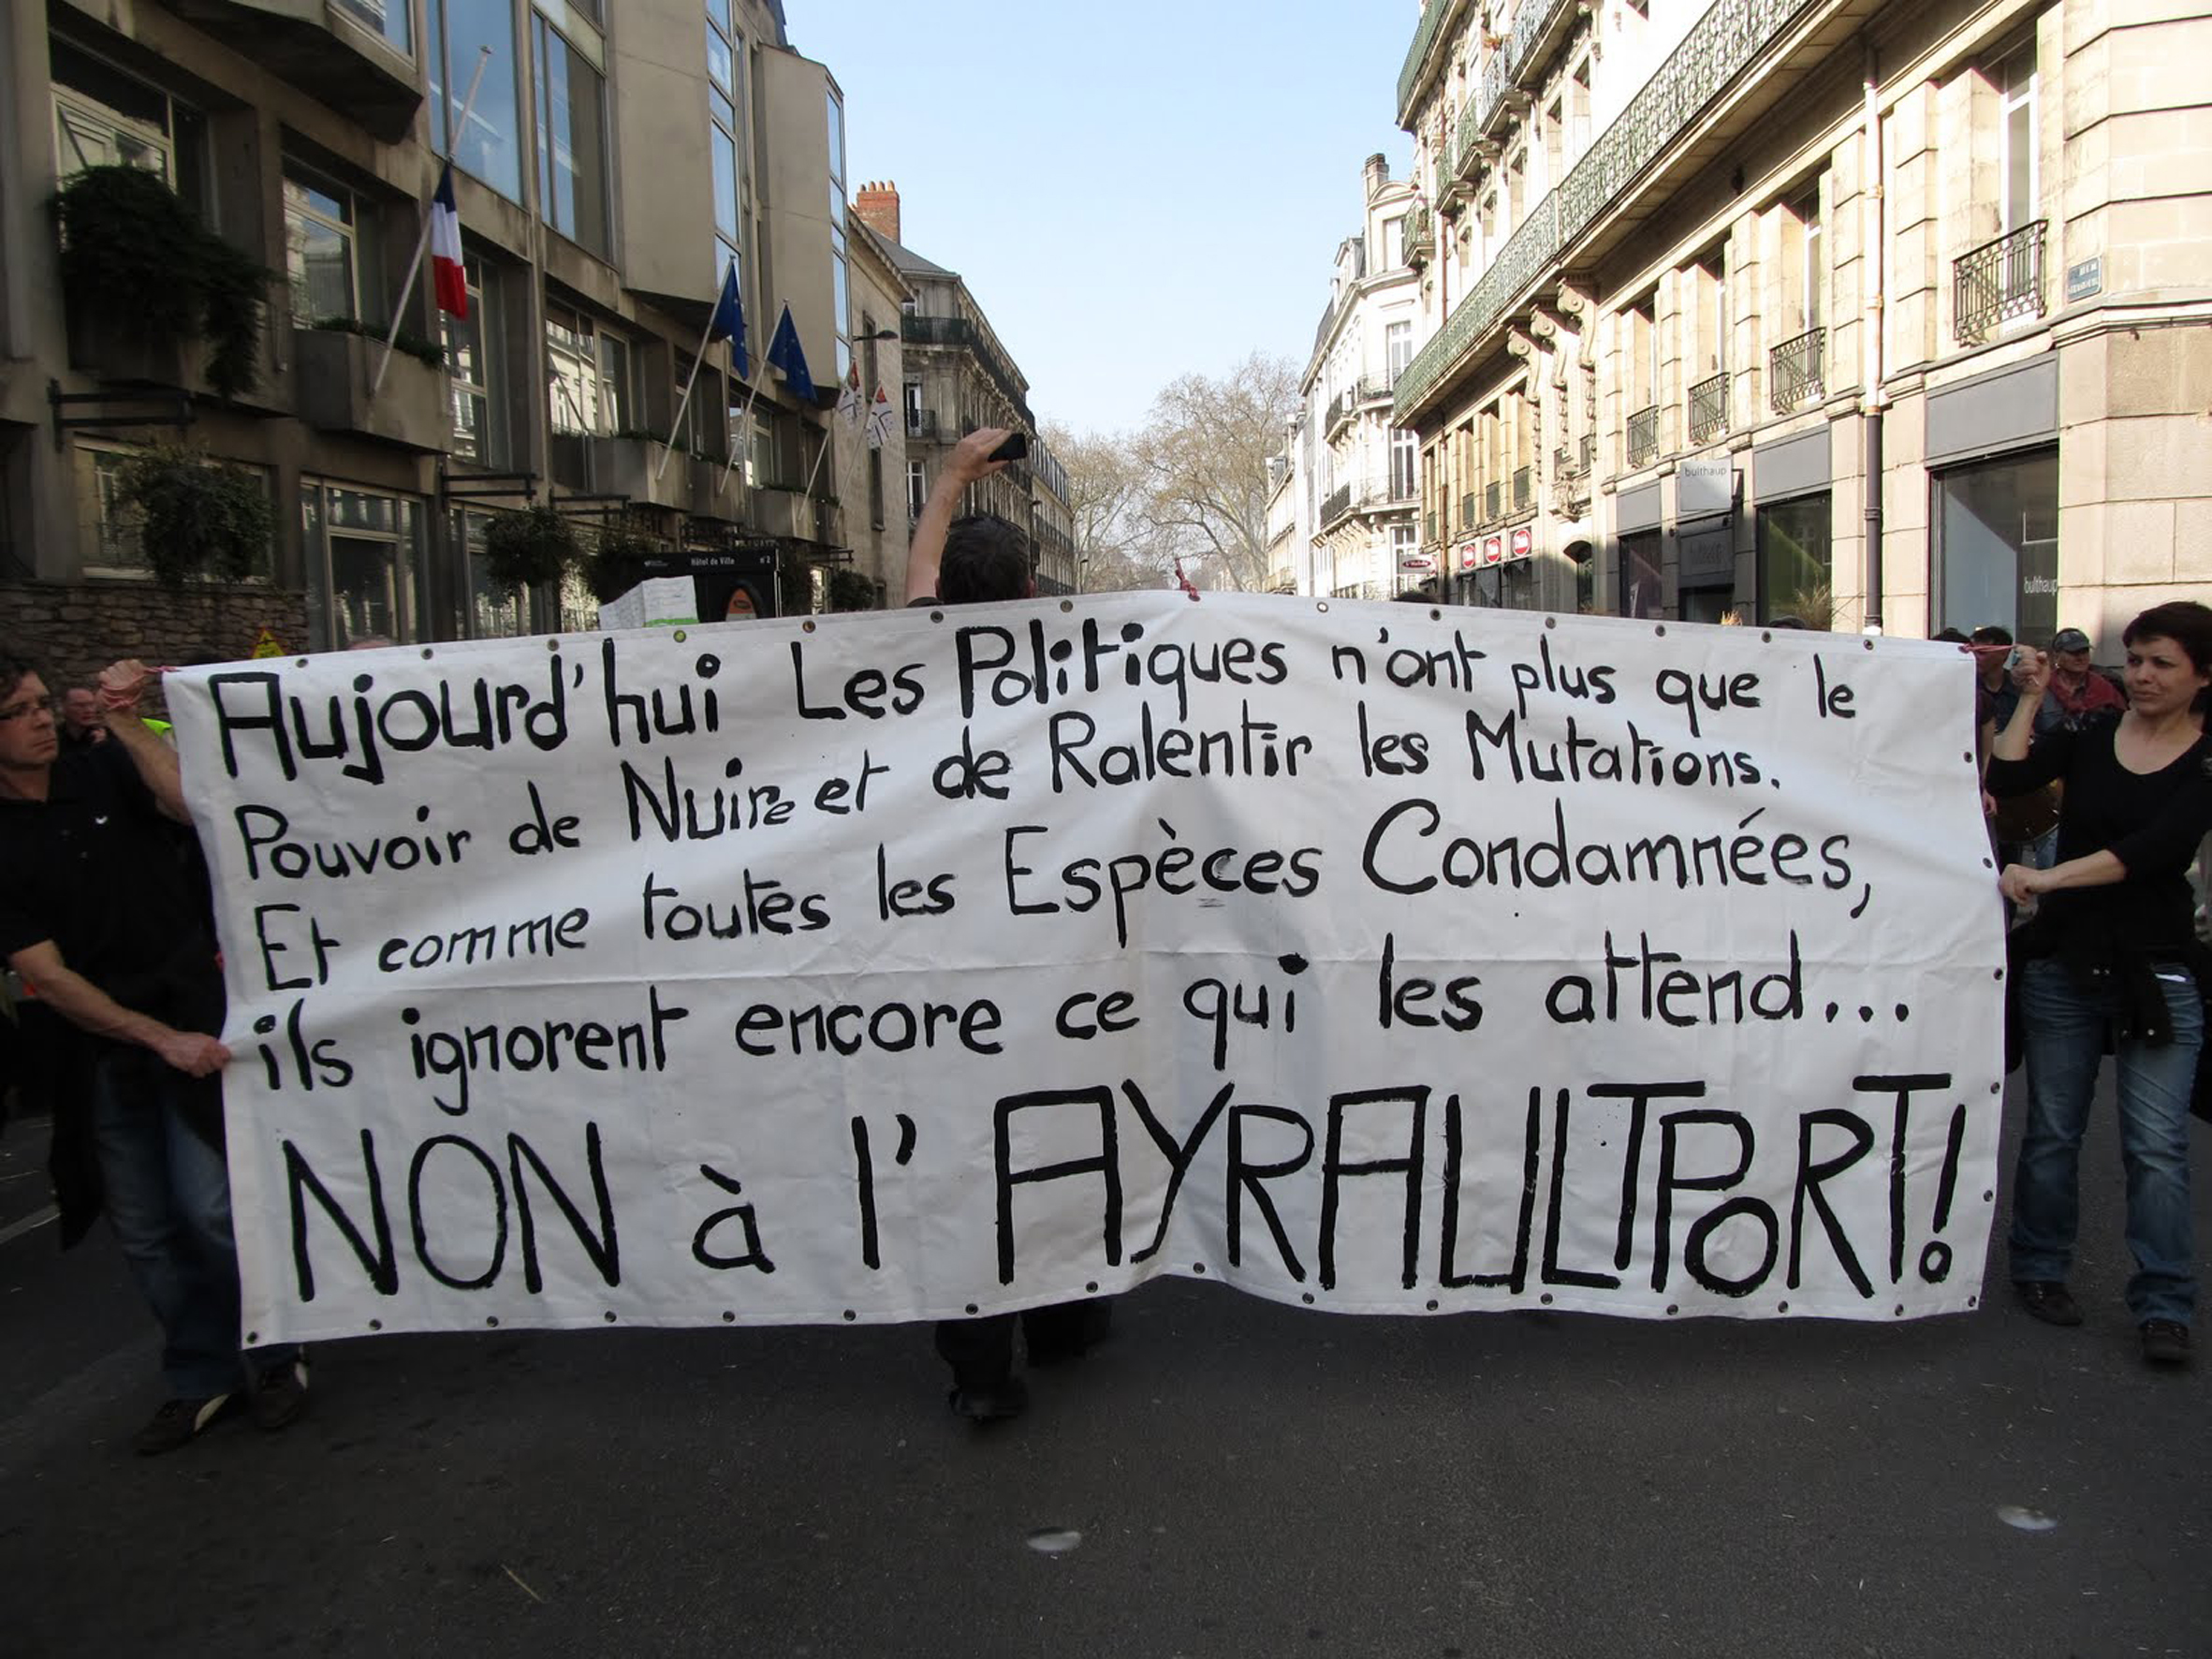 Aujourd'hui Les Politiques n'ont plus que le
Pouvoir de Nuire et de Ralentir les Mutations.
Et comme toutes les Espèces Condamnées,
ils ignorent encore ce qui les attend...
NON à l'AYRAULTPORT!
Hôtel de Ville n°2
bulthaup
bulthaup